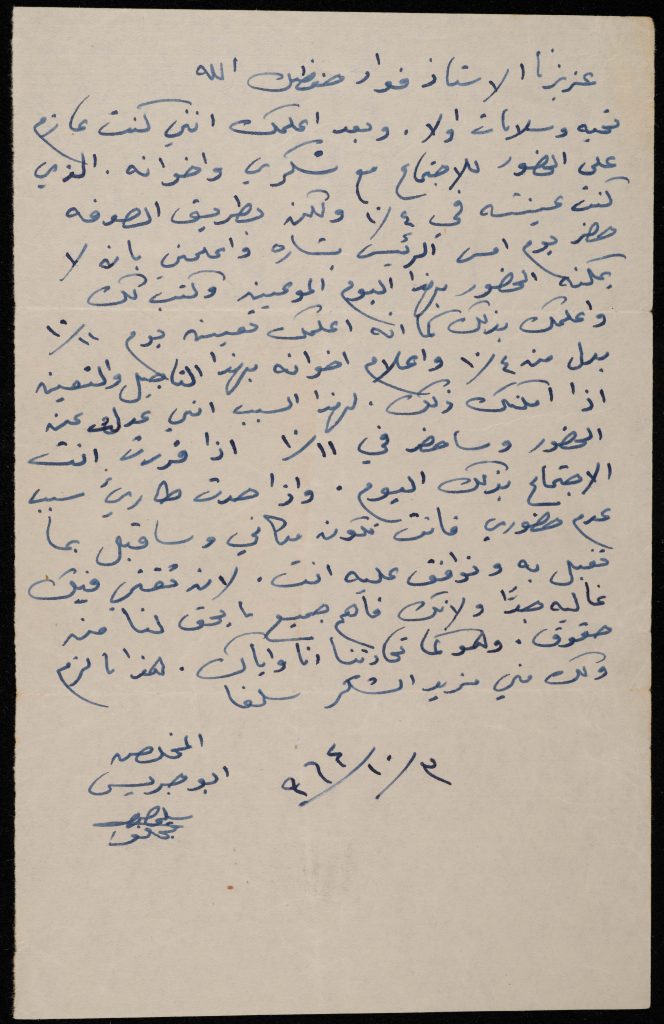 عزيزنا الاستاذ فواد حفظك الله
تحيه وسلامات اولا . وبعد اعلمك انني كنت عازم
على الحضور للاجتماع مع شكري واخوانه . الذي
كنت عينته في ١٠/٤ ولكن بطريق الصوفه
حضر يوم امس الرئيس بشاره واعلمني بانه لا
يمكنه الحضور بهذا اليوم الموعين وكتب لك
واعلمك بذلك كما انه اعلمك تعيينه يوم ١٠/١١
بدل من ١٠/٤ واعلام اخوانه بهذا التاجيل والتعين
اذا امكنك ذلك . لهذا السبب انني عدلت عن
الحضور وساحضر في ١٠/١١ اذا قررت انت
الاجتماع بذلك اليوم . واذا حدث طارئ سبب
عدم حضوري فانت تكون مكاني وساقبل بما
تقبل به وتوافق عليه انت . لان ثقتي فيك
غاليه جدًا ولانك فاهم جميع ما يحق لنا من
حقوق . وهو كما تحادثنا انا واياك . هذا ما لزم
ولك مني مزيد الشكر سلفا
المخلص
ابو جريس
٩٦٤/١٠/٣